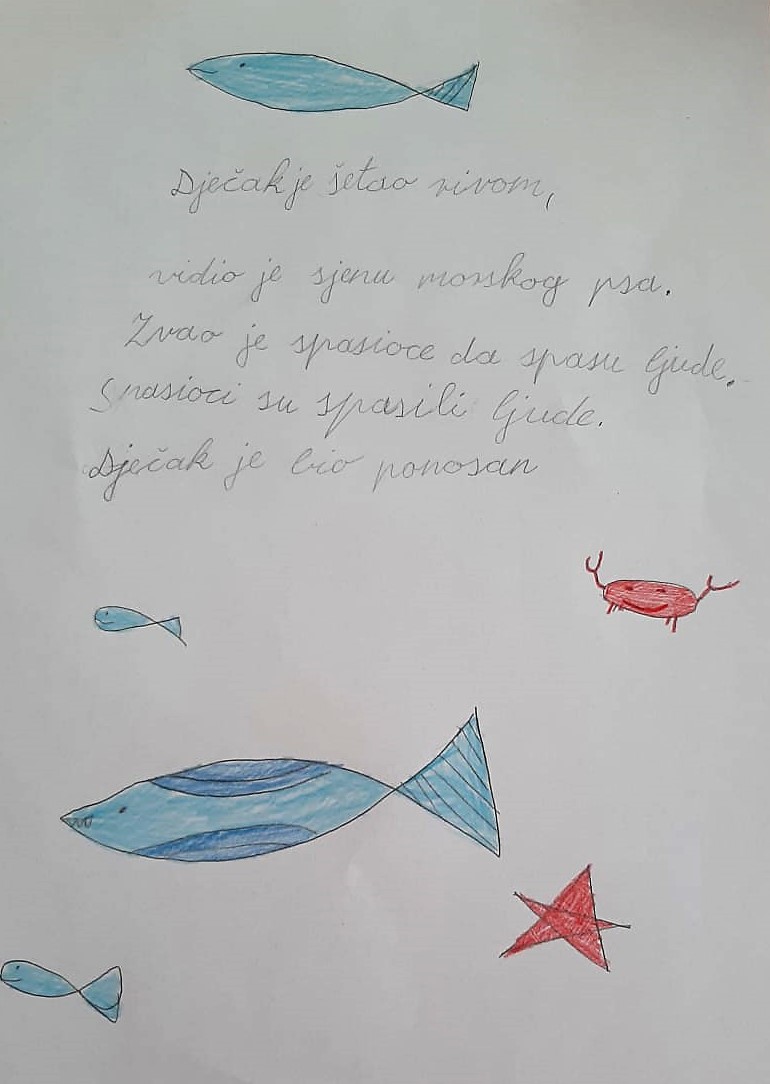 Dječak je šetao rivom,
vidio je sjenu morskog psa.
Zvao je spasioce da spasu ljude.
Spasioci su spasili ljude.
Dječak je bio ponosan